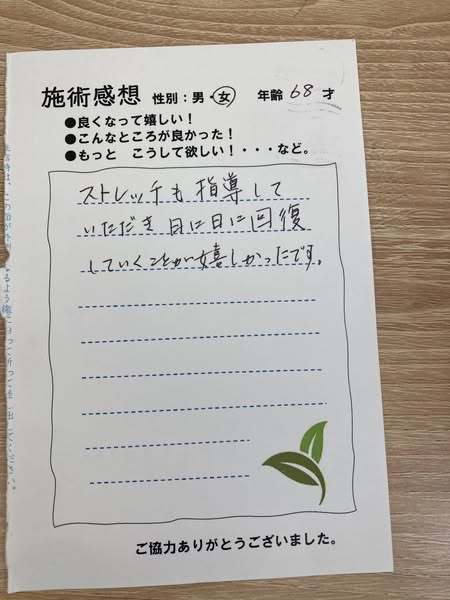 施術感想 性別：男・女 年齢 68 才
●良くなって嬉しい！
●こんなところが良かった！
●もっと こうして欲しい！・・・など。
ストレッチも指導して
いただき 日に日に回復
していくことが嬉しかったです。
ご協力ありがとうございました。